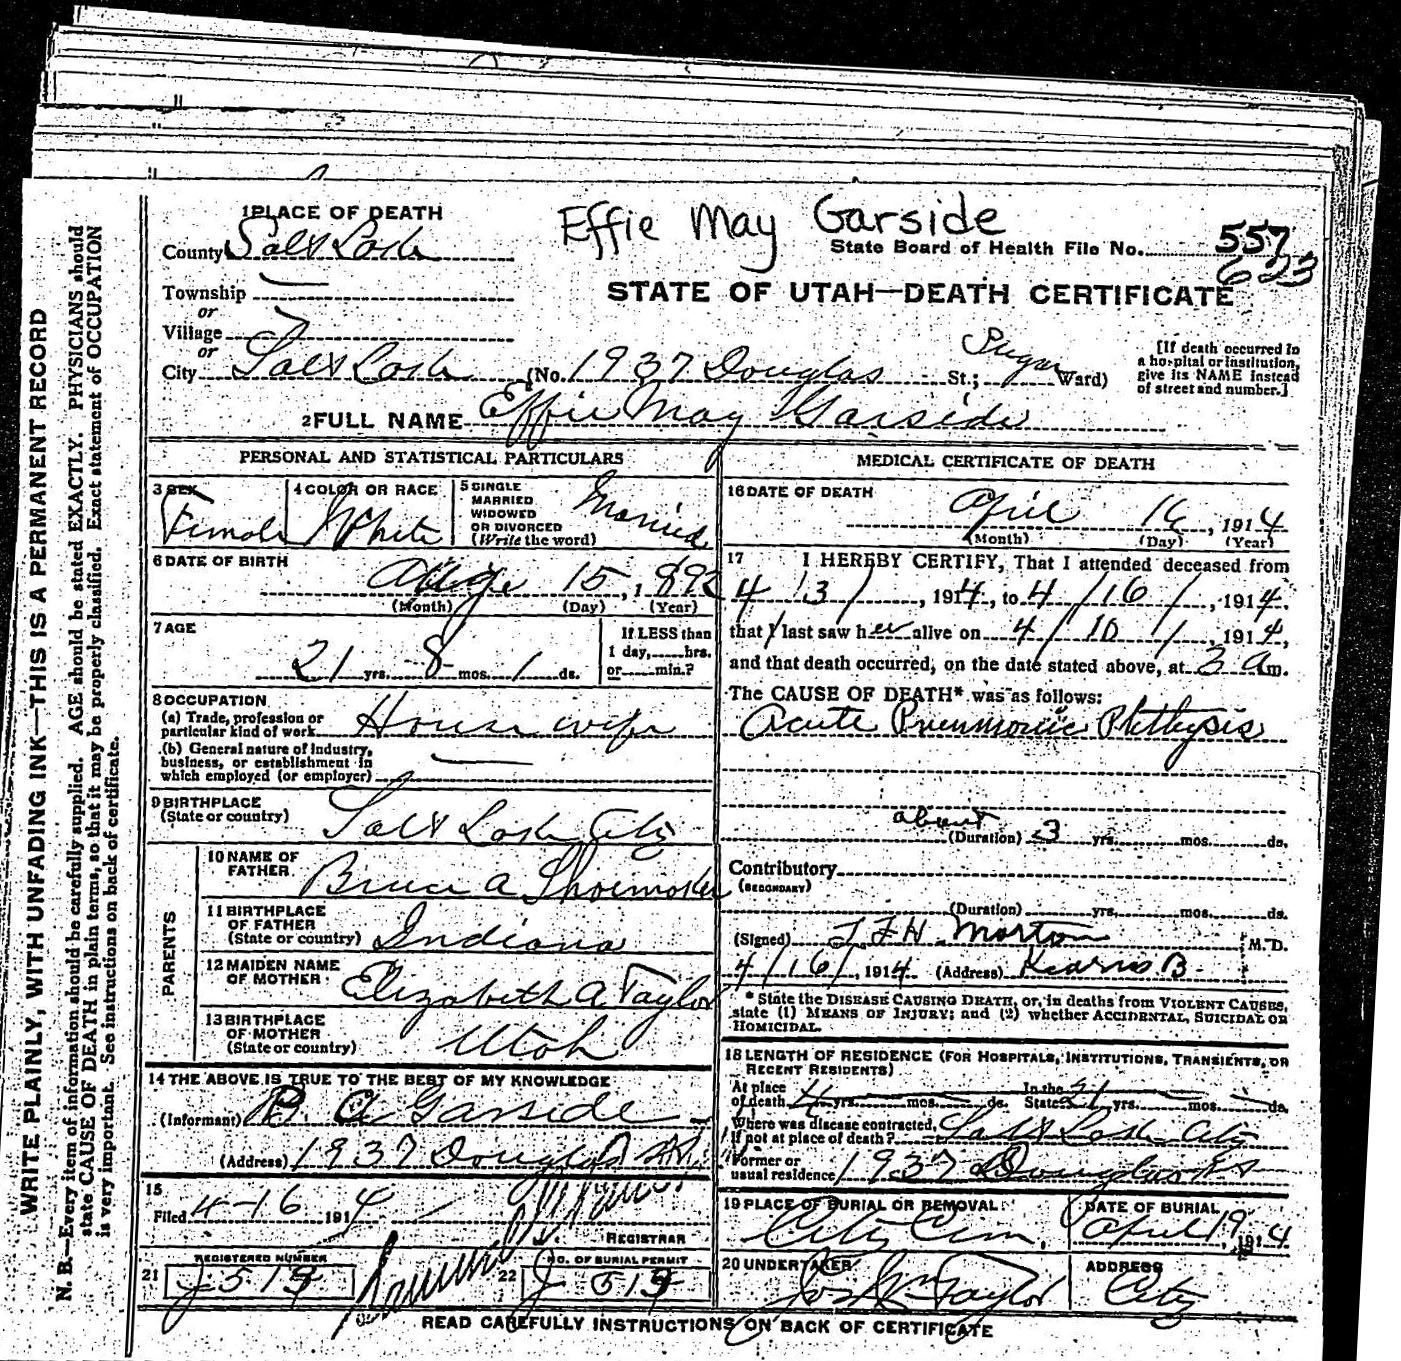 WRITE PLAINLY, WITH UNFADING INK—THIS IS A PERMANENT RECORD
N. B.—Every item of information should be carefully supplied. AGE should be stated EXACTLY. PHYSICIANS should
state CAUSE OF DEATH in plain terms, so that it may be properly classified. Exact statement of OCCUPATION
is very important. See instructions on back of certificate.
1 PLACE OF DEATH
Effie May Garside
County Salt Lake
State Board of Health File No. 557
623
Township
or
STATE OF UTAH—DEATH CERTIFICATE
Village
or
City Salt Lake (No. 1937 Douglas St.; Sugar Ward)
[If death occurred in
a hospital or institution,
give its NAME instead
of street and number.]
2 FULL NAME Effie May Garside
PERSONAL AND STATISTICAL PARTICULARS
3 SEX
Female
4 COLOR OR RACE
White
5 SINGLE
MARRIED
WIDOWED
OR DIVORCED
(Write the word)
Married
6 DATE OF BIRTH
Aug. 15, 1892
(Month) (Day) (Year)
7 AGE
21 yrs. 8 mos. 1 ds.
If LESS than
1 day, hrs.
or min.?
8 OCCUPATION
(a) Trade, profession or
particular kind of work Housewife
(b) General nature of industry,
business, or establishment in
which employed (or employer)
9 BIRTHPLACE
(State or country) Salt Lake City
PARENTS
10 NAME OF
FATHER Bruce A Shoemaker
11 BIRTHPLACE
OF FATHER
(State or country) Indiana
12 MAIDEN NAME
OF MOTHER Elizabeth A Taylor
13 BIRTHPLACE
OF MOTHER
(State or country) Utah
14 THE ABOVE IS TRUE TO THE BEST OF MY KNOWLEDGE
(Informant) A Garside
(Address) 1937 Douglas St.
15
Filed 4-16 1914
REGISTRAR
REGISTERED NUMBER
21 J 519
NO. OF BURIAL PERMIT
22 J 519
MEDICAL CERTIFICATE OF DEATH
16 DATE OF DEATH
April 16, 1914
(Month) (Day) (Year)
17 I HEREBY CERTIFY, That I attended deceased from
4/3/, 1914, to 4/16/, 1914,
that I last saw her alive on 4/10/, 1914,
and that death occurred, on the date stated above, at 3 a m.
The CAUSE OF DEATH* was as follows:
Acute Pneumonic Phthysis
about
(Duration) 3 yrs. mos. ds.
Contributory
(SECONDARY)
(Duration) yrs. mos. ds.
(Signed) Morton M. D.
4/16/, 1914 (Address) Kearns B
* State the DISEASE CAUSING DEATH, or, in deaths from VIOLENT CAUSES,
state (1) MEANS OF INJURY; and (2) whether ACCIDENTAL, SUICIDAL OR
HOMICIDAL.
18 LENGTH OF RESIDENCE (FOR HOSPITALS, INSTITUTIONS, TRANSIENTS, OR
RECENT RESIDENTS)
At place
of death 4 yrs. mos. ds.
In the
State 21 yrs. mos. ds.
Where was disease contracted,
If not at place of death? Salt Lake City
Former or
usual residence 1937 Douglas St
19 PLACE OF BURIAL OR REMOVAL
City Cem.
DATE OF BURIAL
April 19 1914
20 UNDERTAKER
Jos. Wm Taylor
ADDRESS
City
READ CAREFULLY INSTRUCTIONS ON BACK OF CERTIFICATE